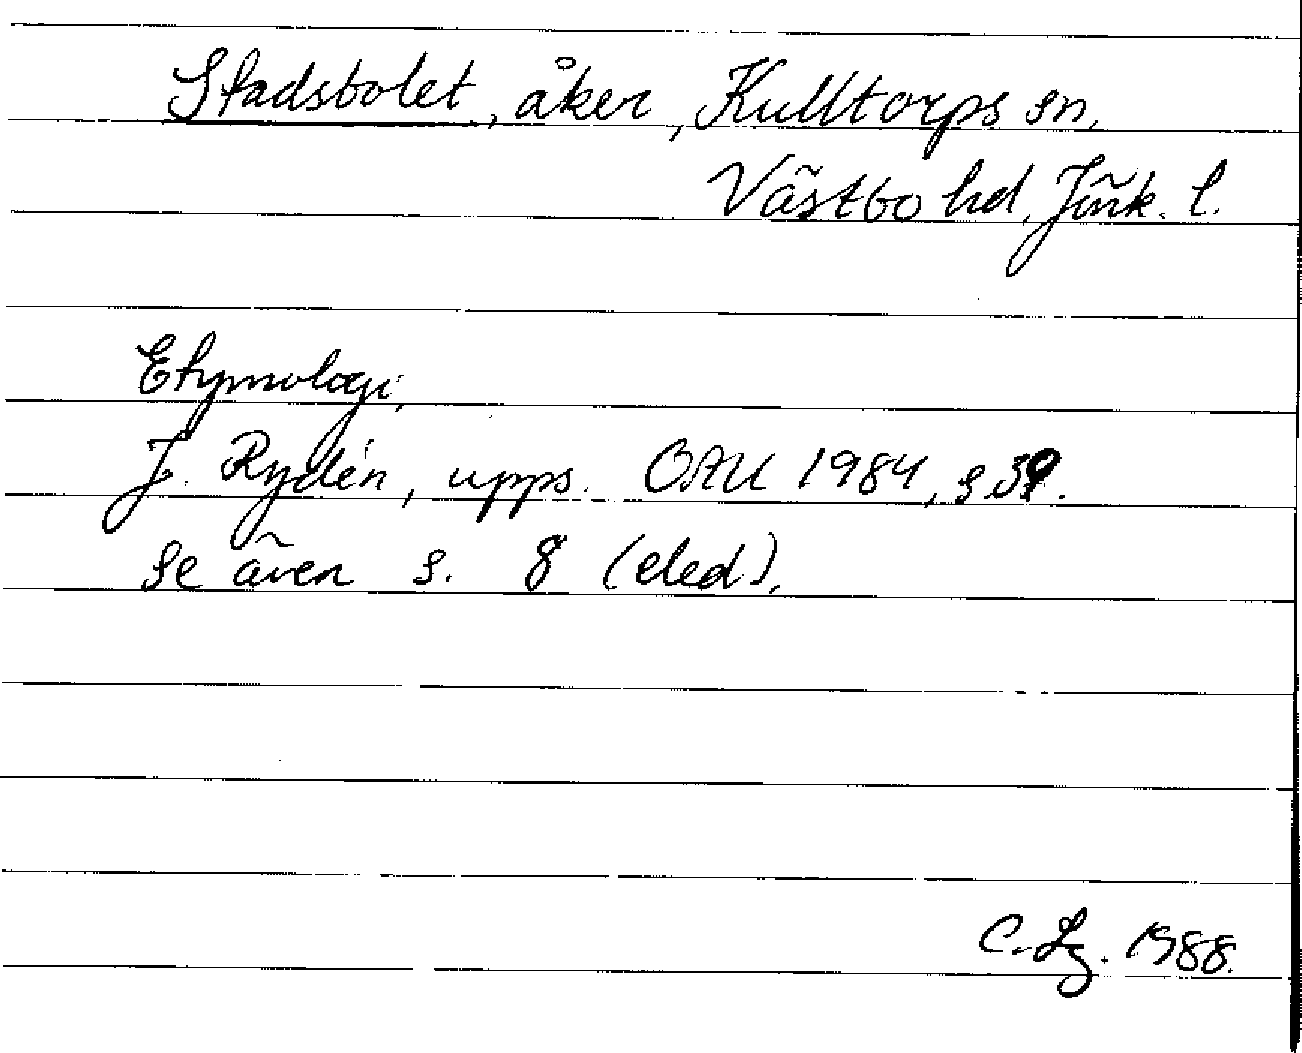 Stadsbolet, åker, Kulltorps sn,
Västbo hd, Jönk. l.
Etymologi,
J. Rydén, upps. OAU 1984, s 39.
Se även s. 8 (eled).
C. Lg. 1988.